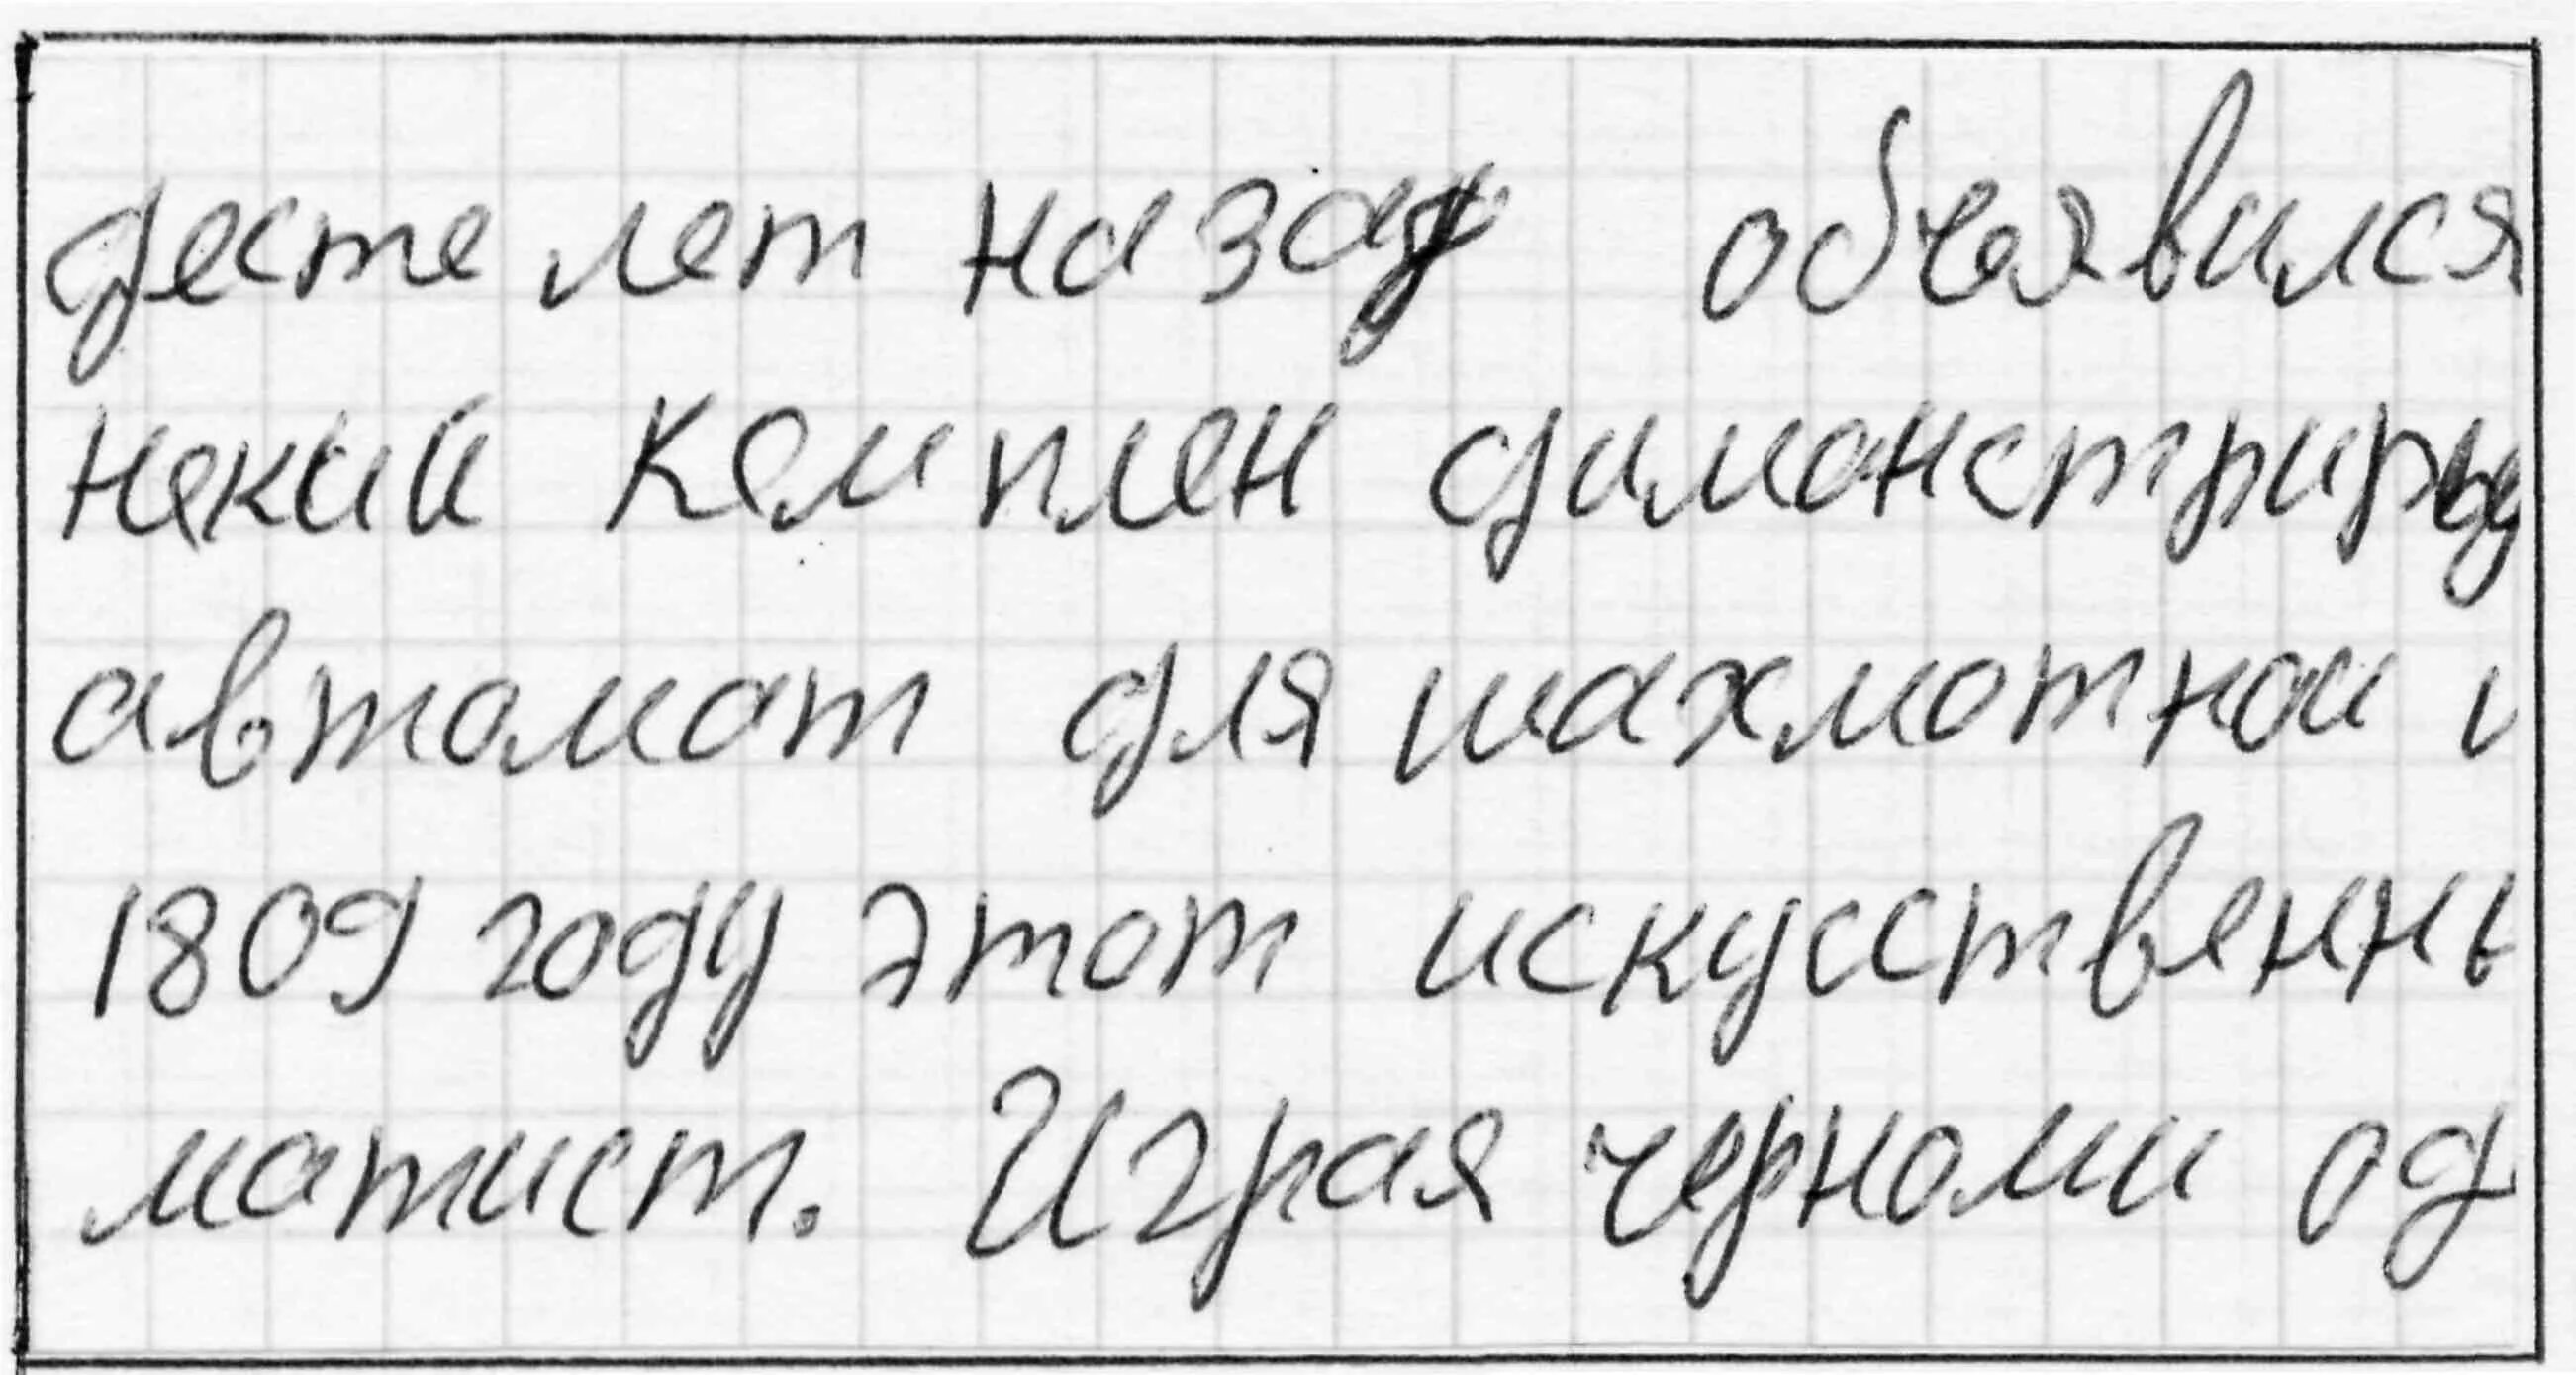 десте лет назад объявился
некий Кемплен димонстрируя
автомат для шахматной и
1809 году этот искусственны
матист. Играя черноми од